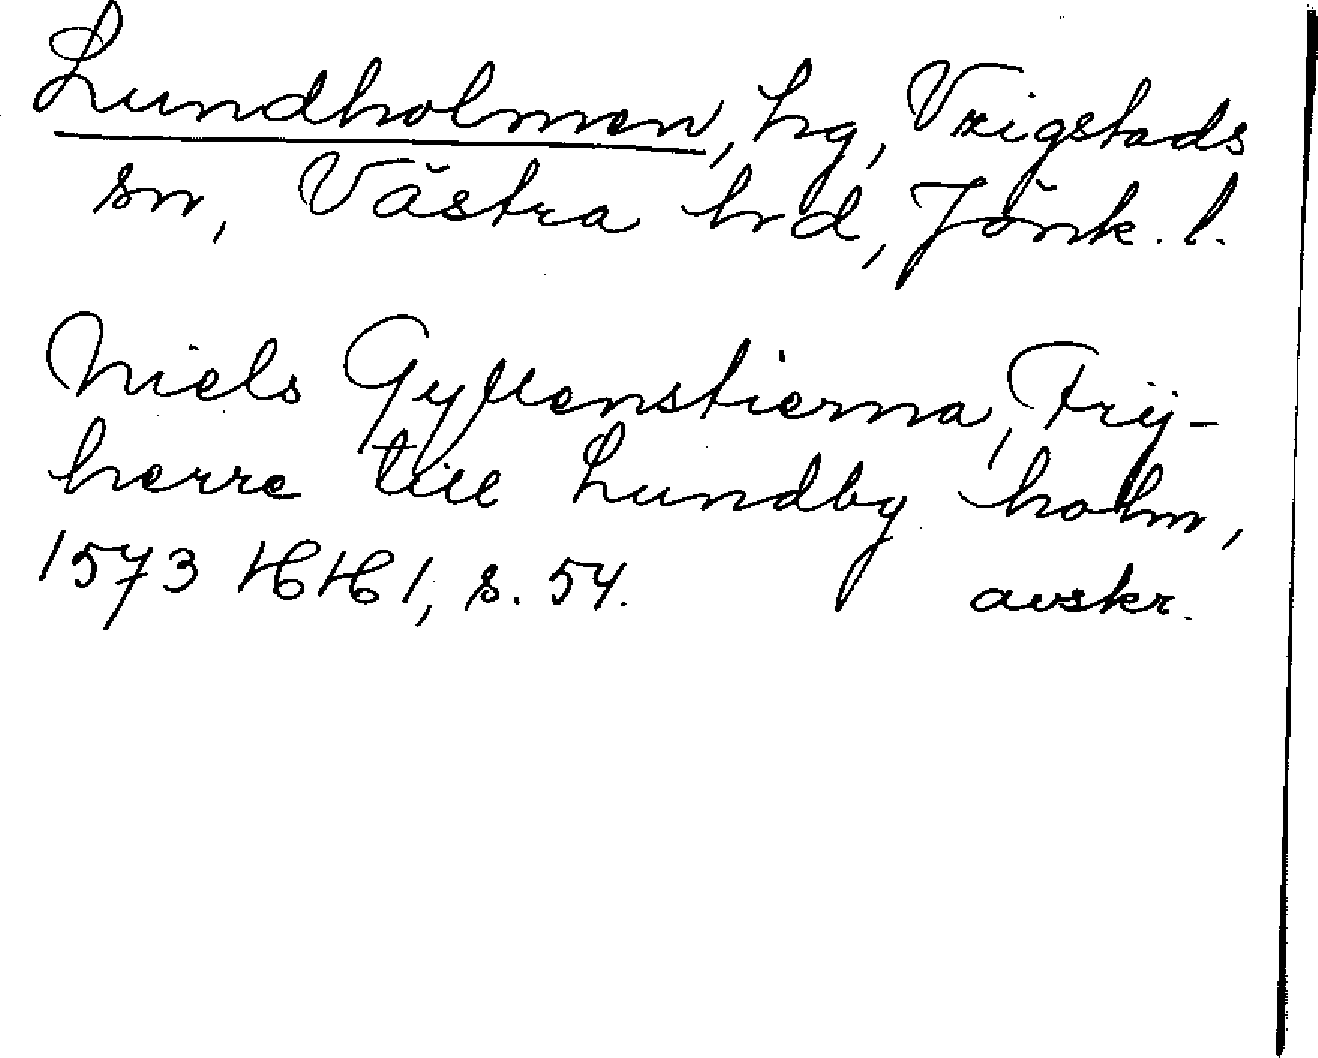 Lundholmen, hg, Vrigstads
sn, Västra hrd, Jönk. l.
Niels Gyllenstierna, Frij-
herre till Lundby holm,
1573 HH 1, s. 54. avskr.